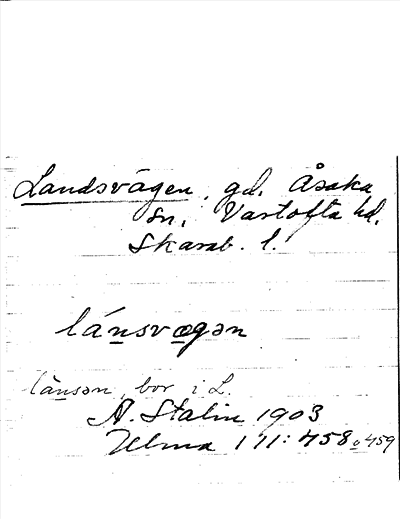 Landsvägen, gd. Åsaka
sn, Vartofta hd.
Skarab. l.
lánsvægən
lànsən, bor i L.
A. Stalin 1903
Ulma 171: 458 o 459